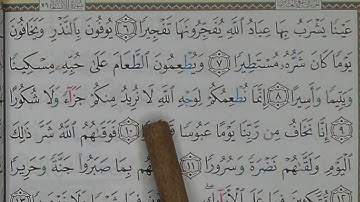 عَيْنًا يَشْرَبُ بِهَا عِبَادُ اللَّهِ يُفَجِّرُونَهَا تَفْجِيرًا ٦ يُوفُونَ بِالنَّذْرِ وَيَخَافُونَ
يَوْمًا كَانَ شَرُّهُ مُسْتَطِيرًا ٧ وَيُطْعِمُونَ الطَّعَامَ عَلَىٰ حُبِّهِ مِسْكِينًا
وَيَتِيمًا وَأَسِيرًا ٨ إِنَّمَا نُطْعِمُكُمْ لِوَجْهِ اللَّهِ لَا نُرِيدُ مِنكُمْ جَزَاءً وَلَا شُكُورًا
٩ إِنَّا نَخَافُ مِن رَّبِّنَا يَوْمًا عَبُوسًا ١٠ فَوَقَاهُمُ اللَّهُ شَرَّ ذَٰلِكَ
الْيَوْمِ وَلَقَّاهُمْ نَضْرَةً وَسُرُورًا ١١ بِمَا صَبَرُوا جَنَّةً وَحَرِيرًا
١٢ مُتَّكِئِينَ فِيهَا عَلَى الْأَرَائِكِ